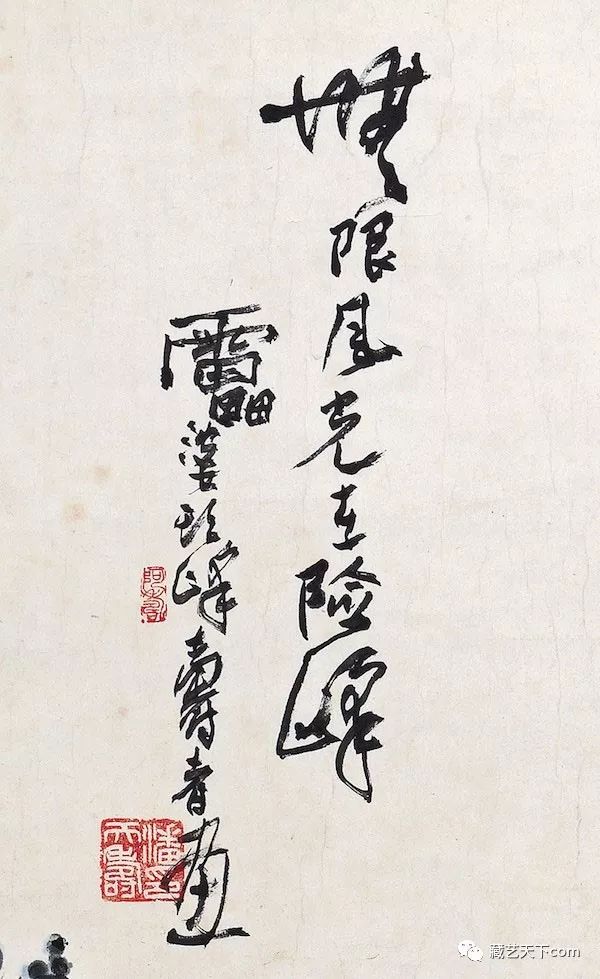 無限風光在險峰
靁婆頭峰壽者畫
阿壽
潘天壽印
藏艺天下com